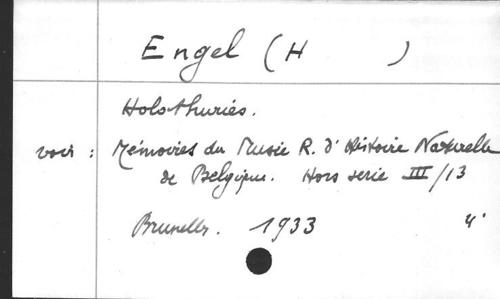 Engel (H )
Holothuries.
voir : Mémoires du Musée R. d'Histoire Naturelle
de Belgique. Hors serie III/13
Bruxelles. 1933 4°